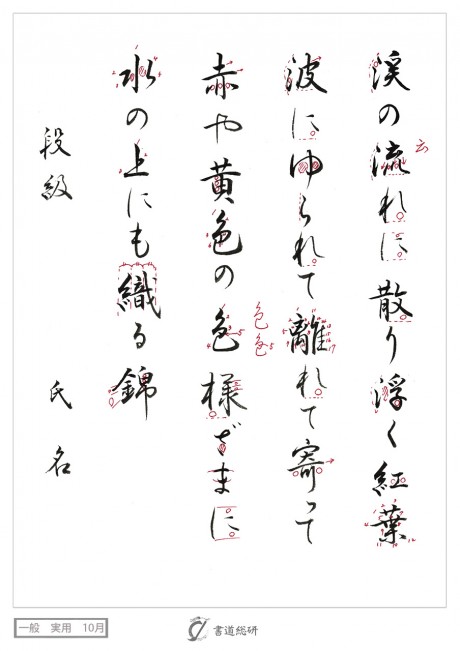 渓の流れに散り浮く紅葉
波にゆられて離れて寄って
赤や黄色の色様ざまに
水の上にも織る錦
段級 氏名
云
色
色
一般 実用 10月
書道総研